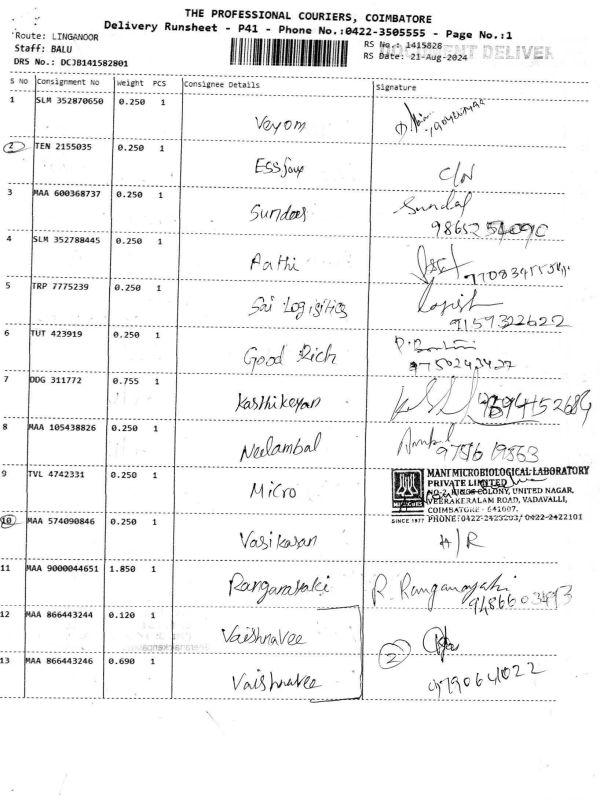 THE PROFESSIONAL COURIERS, COIMBATORE
Delivery Runsheet - P41 - Phone No.:0422-3505555 - Page No.:1
Route: LINGANOOR
RS No.: 1415828
Staff: BALU
RS Date: 21-Aug-2024
DRS No.: DCJB141582801
S No Consignment No Weight PCS Consignee Details Signature
1 SLM 352870650 0.250 1 Veyom
2 TEN 2155035 0.250 1 C/N
3 MAA 600368737 0.250 1 Sundar
4 SLM 352788445 0.250 1 Aathi
5 TRP 7775239 0.250 1 Sai Logisitics 9159322622
6 TUT 423919 0.250 1 Good Rich 9750243427
7 DDG 311772 0.755 1 Kasthikeyan
8 MAA 105438826 0.250 1 Neelambal
9 TVL 4742331 0.250 1 Micro
MANI MICROBIOLOGICAL LABORATORY
PRIVATE LIMITED
NO-2, KINGS COLONY, UNITED NAGAR,
VEERAKERALAM ROAD, VADAVALLI,
COIMBATORE - 641007.
SINCE 1977 PHONE:0422-2423203/ 0422-2422101
10 MAA 574090846 0.250 1 Vasikaran H/R
11 MAA 9000044651 1.850 1 R. Ranganayaki
12 MAA 866443244 0.120 1 Vaishnavee
2
13 MAA 866443246 0.690 1 Vaishnavee